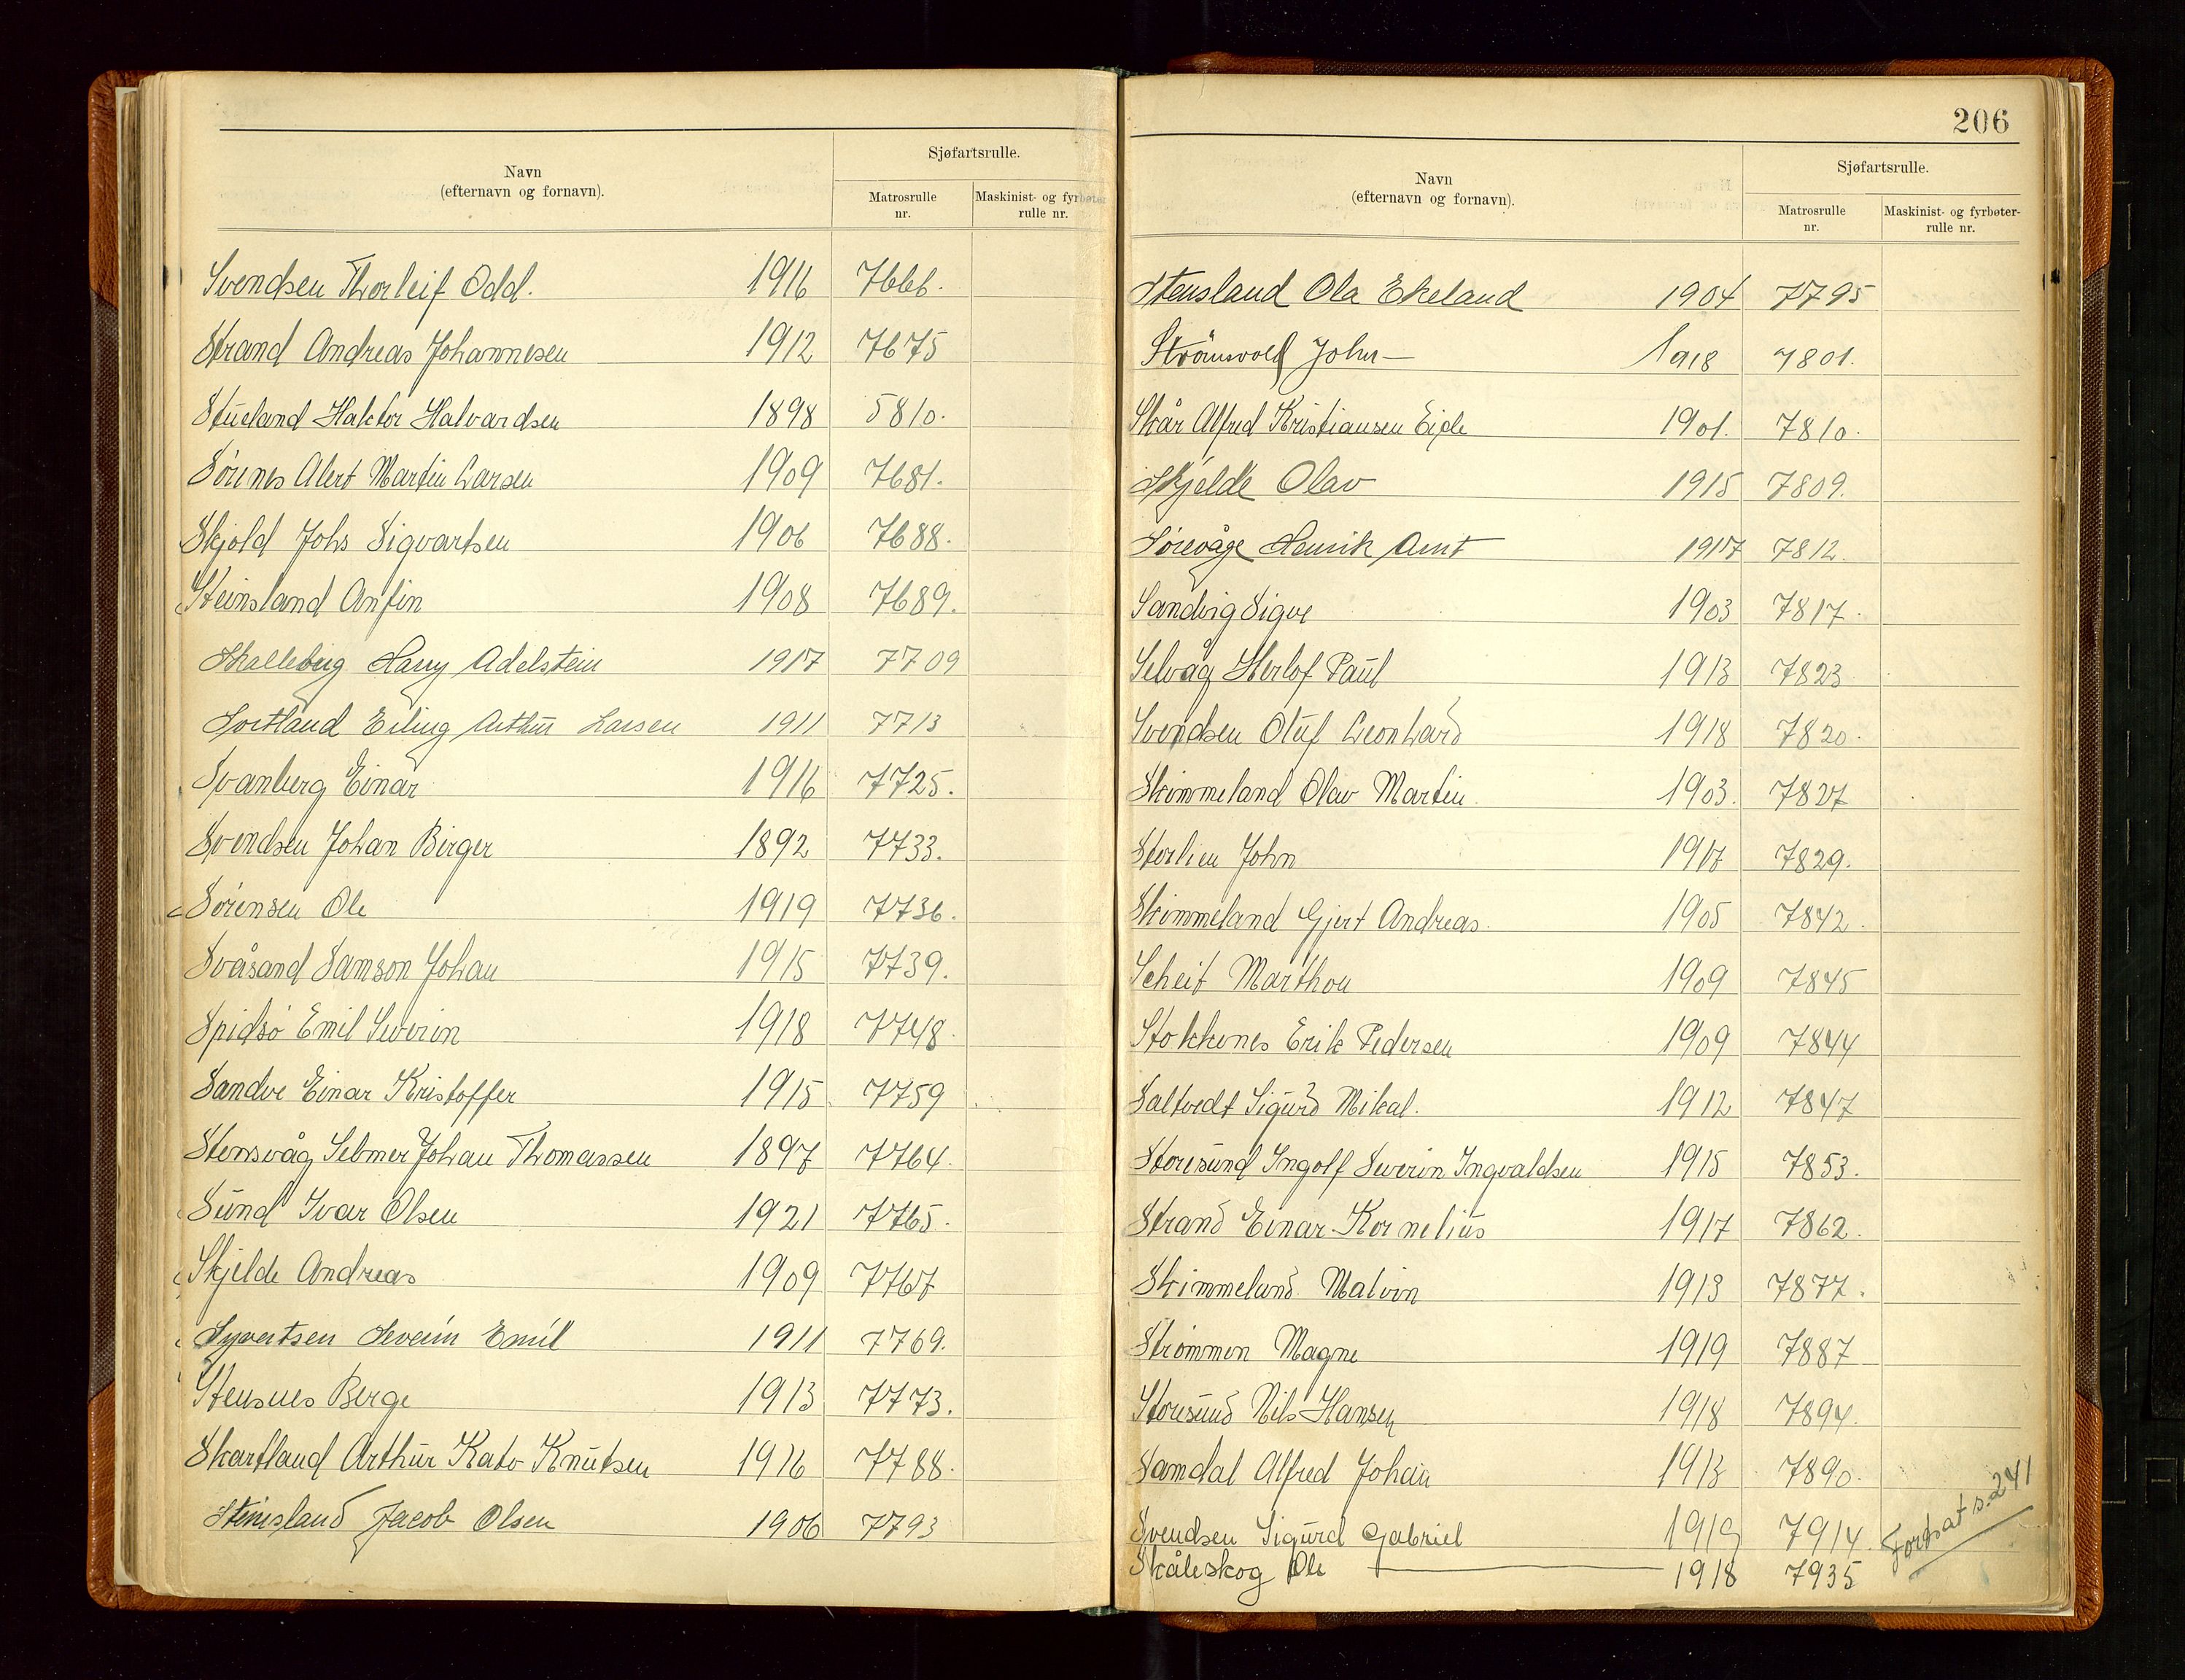 Navn
(efternavn og fornavn).
Sjøfartsrulle.
Matrosrulle
nr.
Maskinist- og fyrbøter-
rulle nr.
Svendsen Thorleif Odd. 1916 7666.
Strand Andreas Johannesen 1912 7675
Stueland Haktor Halvardsen 1898 5810.
Sörenes Alert Martin Larsen 1909 7681.
Skjold Johs Sigvartsen 1906 7688.
Steinsland Anfin 1908 7689.
Skalleberg Harry Adelstein 1917 7709
Sortland Erling Arthur Larsen 1911 7713
Svanberg Einar 1916 7725.
Svendsen Johan Birger 1892 7733.
Sörensen Ole 1919 7736.
Svåsand Samson Johan 1915 7739.
Spidsö Emil Severin 1918 7748.
Sandve Einar Kristoffer 1915 7759
Stensvåg Selmer Johan Thomassen 1897 7764.
Sund Ivar Olsen 1921 7765.
Skjelde Andreas 1909 7767
Syvertsen Severin Emil 1911 7769.
Stensnes Berge 1913 7773.
Skartland Arthur Kato Knutsen 1916 7788.
Steinsland Jacob Olsen 1906 7793
206
Navn
(efternavn og fornavn).
Sjøfartsrulle.
Matrosrulle
nr.
Maskinist- og fyrbøter-
rulle nr.
Stensland Ola Ekeland 1904 7795
Strömsvold John — 1918 7801.
Skår Alfred Kristiansen Eide 1901. 7810.
Skjelde Olav 1915 7809.
Sörevåge Henrik Arnt 1917 7812.
Sandvig Sigve 1903 7817.
Selvåg Herlof Paul 1913 7823
Svendsen Oluf Leonhard 1918 7820.
Skimmeland Olav Martin. 1903. 7827
Storlien John 1917 7829.
Skimmeland Gjert Andreas. 1905 7842.
Scheit Marthon 1909 7845
Stokkenes Erik Pedersen 1909 7844
Saltvedt Sigurd Mikal. 1912 7847
Storesund Ingolf Severin Ingvaldsen 1915 7853.
Strand Einar Kornelius 1917 7862.
Skimmeland Malvin 1913 7877.
Strömmen Magne 1919 7887
Storesund Nils Hansen 1918 7894.
Samdal Alfred Johan 1913 7890.
Svendsen Sigurd Gabriel 1919 7914.
Skåleskog Ole — 1918 7935
Fortsat s. 241